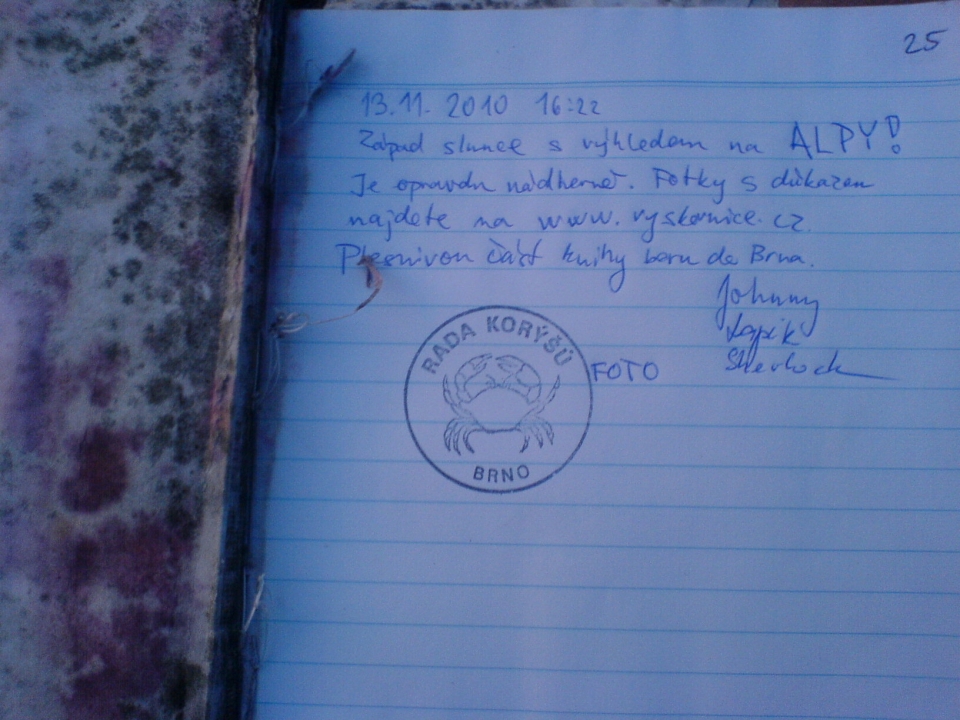 25
13.11. 2010 16:22
Západ slunce s výhledem na ALPY!
Je opravdu nádherné. Fotky s důkazem
najdete na www.vyskovnice.cz.
Plesnivou část knihy beru do Brna.
Johnny
Kapik
Sherlock
FOTO
RADA KORÝŠŮ
BRNO